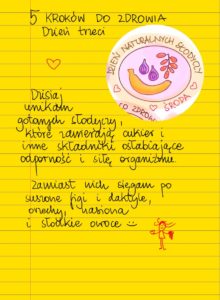 5 KROKÓW DO ZDROWIA
Dzień trzeci
DZIEŃ NATURALNYCH SŁODYCZY
CO ZDROW ŚRODA
Dzisiaj
unikam
gotowych słodyczy,
które zawierają cukier i
inne składniki osłabiające
odporność i siłę organizmu.
Zamiast nich sięgam po
suszone figi i daktyle,
orzechy, nasiona
i słodkie owoce